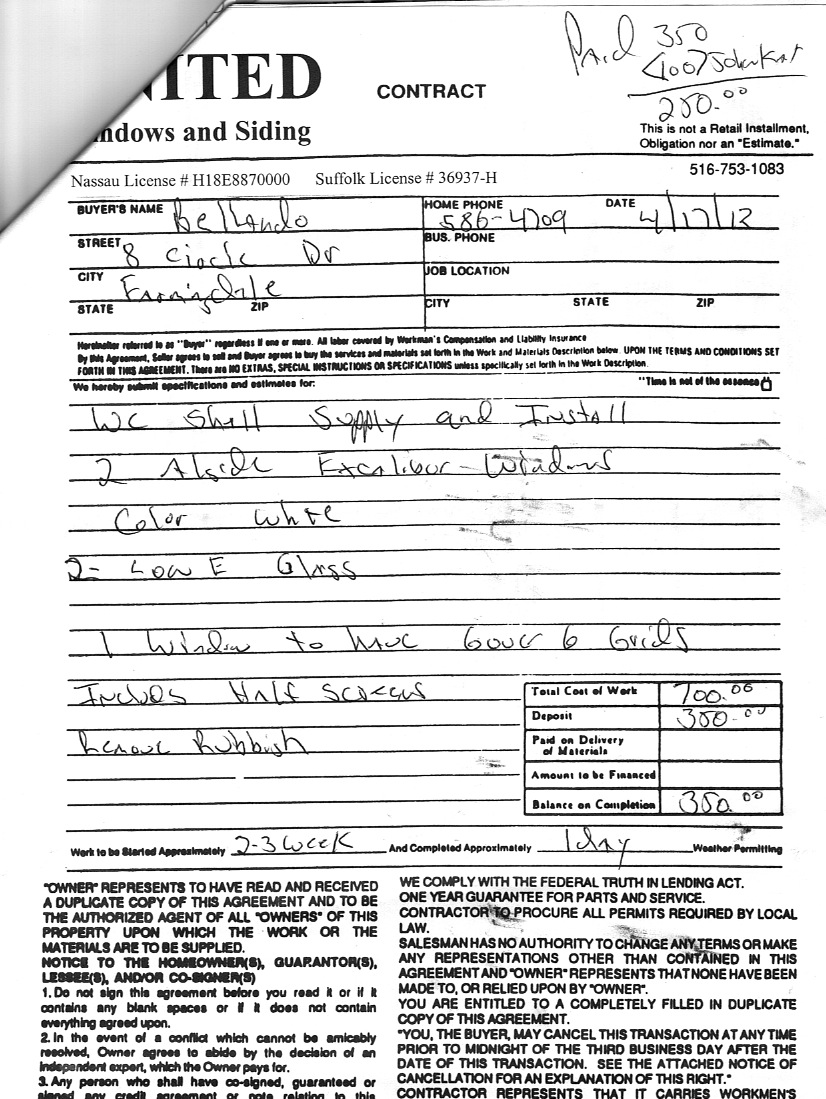 Paid 350
<100>
250.00
NITED
CONTRACT
ndows and Siding
This is not a Retail Installment,
Obligation nor an "Estimate."
516-753-1083
Nassau License # H18E8870000 Suffolk License # 36937-H
BUYER'S NAME Bellando
HOME PHONE 586-4709 DATE 4/17/12
STREET 8 Circle Dr
BUS. PHONE
CITY Farmingdale
JOB LOCATION
STATE ZIP
CITY STATE ZIP
Hereinafter referred to as "Buyer" regardless if one or more. All labor covered by Workman's Compensation and Liability Insurance
By this Agreement, Seller agrees to sell and Buyer agrees to buy the services and materials set forth in the Work and Materials Description below. UPON THE TERMS AND CONDITIONS SET
FORTH IN THIS AGREEMENT. There are NO EXTRAS, SPECIAL INSTRUCTIONS OR SPECIFICATIONS unless specifically set forth in the Work Description.
We hereby submit specifications and estimates for: "Time is not of the essence"
We Shall Supply and Install
2 Alside Excalibur-Windows
Color White
2- Low E Glass
1 Window to have 6 over 6 Grids
Includes Half Screens
Remove Rubbish
Total Cost of Work 700.00
Deposit 350.00
Paid on Delivery
of Materials
Amount to be Financed
Balance on Completion 350.00
Work to be Started Approximately 2-3 week And Completed Approximately 1 day Weather Permitting
"OWNER" REPRESENTS TO HAVE READ AND RECEIVED
A DUPLICATE COPY OF THIS AGREEMENT AND TO BE
THE AUTHORIZED AGENT OF ALL "OWNERS" OF THIS
PROPERTY UPON WHICH THE WORK OR THE
MATERIALS ARE TO BE SUPPLIED.
NOTICE TO THE HOMEOWNER(S), GUARANTOR(S),
LESSEE(S), AND/OR CO-SIGNER(S)
1. Do not sign this agreement before you read it or if it
contains any blank spaces or if it does not contain
everything agreed upon.
2. In the event of a conflict which cannot be amicably
resolved, Owner agrees to abide by the decision of an
independent expert, which the Owner pays for.
3. Any person who shall have co-signed, guaranteed or
signed any credit agreement or note relating to this
WE COMPLY WITH THE FEDERAL TRUTH IN LENDING ACT.
ONE YEAR GUARANTEE FOR PARTS AND SERVICE.
CONTRACTOR TO PROCURE ALL PERMITS REQUIRED BY LOCAL
LAW.
SALESMAN HAS NO AUTHORITY TO CHANGE ANY TERMS OR MAKE
ANY REPRESENTATIONS OTHER THAN CONTAINED IN THIS
AGREEMENT AND "OWNER" REPRESENTS THAT NONE HAVE BEEN
MADE TO, OR RELIED UPON BY "OWNER".
YOU ARE ENTITLED TO A COMPLETELY FILLED IN DUPLICATE
COPY OF THIS AGREEMENT.
"YOU, THE BUYER, MAY CANCEL THIS TRANSACTION AT ANY TIME
PRIOR TO MIDNIGHT OF THE THIRD BUSINESS DAY AFTER THE
DATE OF THIS TRANSACTION. SEE THE ATTACHED NOTICE OF
CANCELLATION FOR AN EXPLANATION OF THIS RIGHT."
CONTRACTOR REPRESENTS THAT IT CARRIES WORKMEN'S